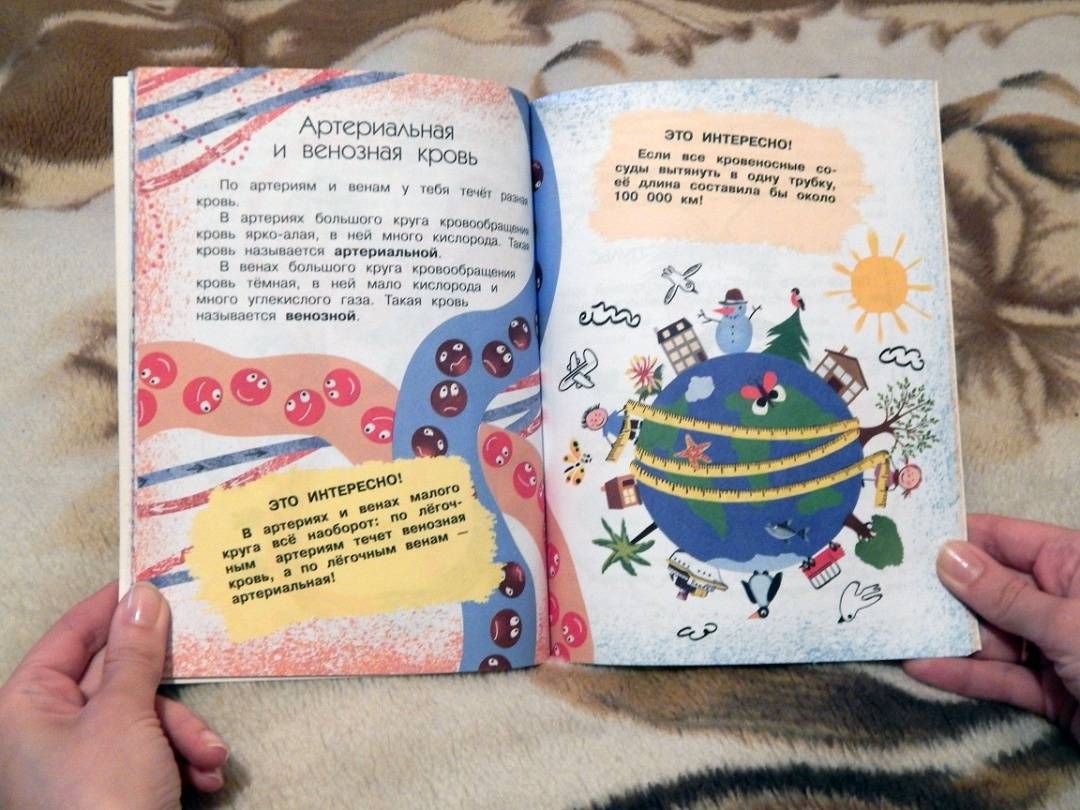 Артериальная
и венозная кровь
По артериям и венам у тебя течёт разная
кровь.
В артериях большого круга кровообращения
кровь ярко-алая, в ней много кислорода. Такая
кровь называется артериальной.
В венах большого круга кровообращения
кровь тёмная, в ней мало кислорода и
много углекислого газа. Такая кровь
называется венозной.
ЭТО ИНТЕРЕСНО!
В артериях и венах малого
круга всё наоборот: по лёгоч-
ным артериям течет венозная
кровь, а по лёгочным венам –
артериальная!
ЭТО ИНТЕРЕСНО!
Если все кровеносные со-
суды вытянуть в одну трубку,
её длина составила бы около
100 000 км!